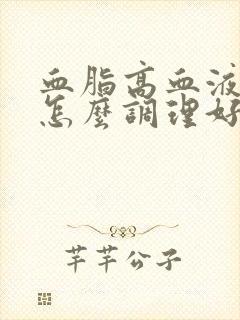 血脂高血液
怎麼調理好
芊芊公子